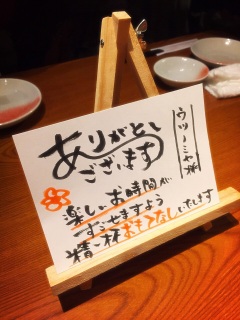 ウツノミヤ様
ありがとう
ございます
楽しいお時間が
すごせますよう
精一杯おもてなしいたします